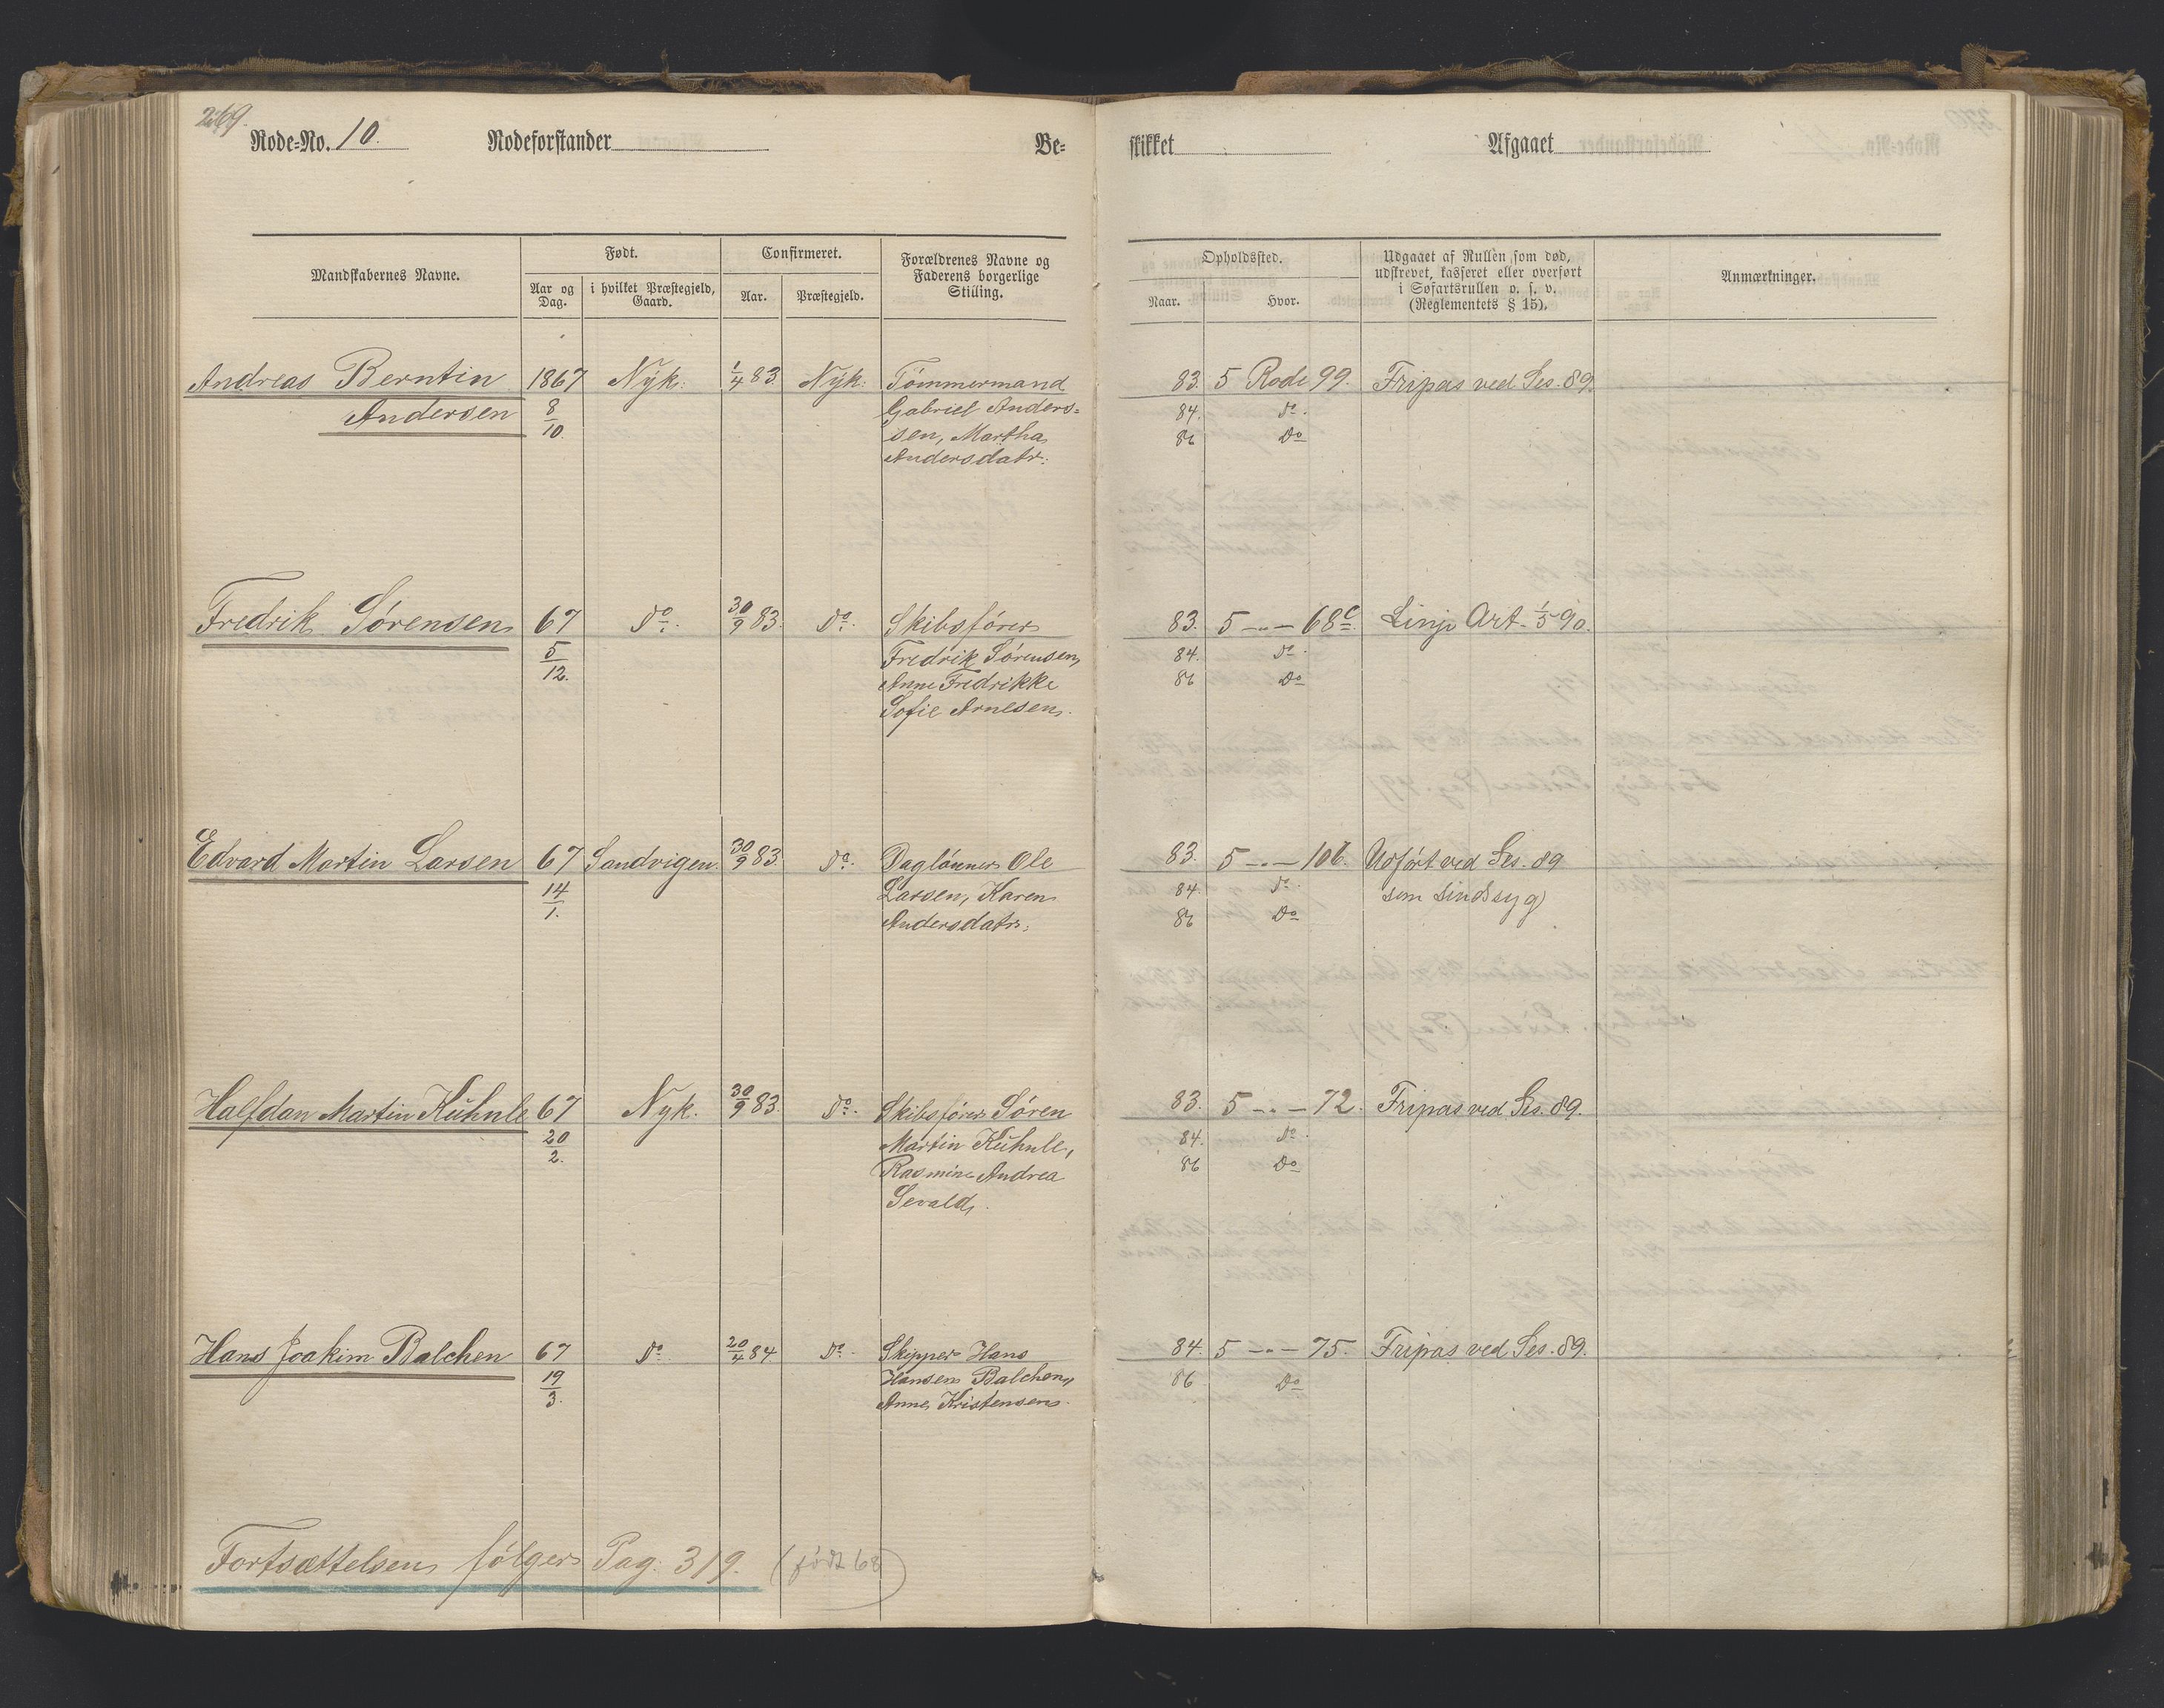 269.
Rode=No. 10. Rodeforstander Be=
skikket Afgaaet
Mandskabernes Navne.
Født.
Aar og Dag.
i hvilket Præstegjeld, Gaard.
Confirmeret.
Aar.
Præstegjeld.
Forældrenes Navne og
Faderens borgerlige
Stilling.
Opholdssted.
Naar.
Hvor.
Udgaaet af Rullen som død,
udskrevet, kasseret eller overført
i Søfartsrullen o. s. v.
(Reglementets § 15).
Anmærkninger.
Andreas Berntin 1867 Nyk. 1/4 83. Nyk. Tømmermand 83. 5 Rode 99. Fripas ved Ses. 89.
Andersen 8/10. Gabriel Anders= 84. do.
sen, Martha 86 Do
Andersdatr.
Fredrik Sørensen 67 do. 30/9 83. do. Skibsfører 83. 5 -"- 68c. Linje Art. 1/5 90.
5/12. Fredrik Sørensen, 84. do.
Anne Fredrikke 86 Do
Sofie Arnesen.
Edvard Martin Larsen 67 Sandvigen. 30/9 83. do. Daglønner Ole 83. 5 -"- 106. Udført ved Ses. 89
14/1. Larsen, Karen 84. do. som sindssyg
Andersdatr. 86 Do
Halfdan Martin Kühnle 67 Nyk. 30/9 83. do. Skibsfører Søren 83. 5 -"- 72. Fripas ved Ses. 89.
20/2. Martin Kühnle, 84. do.
Rasmine Andrea 86 Do
Sevald.
Hans Joakim Balchen 67 do 20/4 84 do. Skipper Hans 84. 5 -"- 75. Fripas ved Ses. 89.
19/3. Hansen Balchen, 86 Do
Anne Kristensen.
Fortsættelsen følger Pag. 319. (født 68)